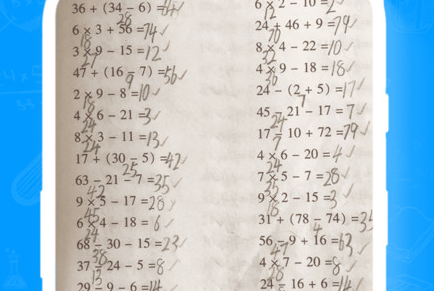 36 + (34 − 6) =64✓ 6 × 2 − 10 =2✓
28 12
6 × 3 + 56 =74✓ 24 + 46 + 9 =79✓
18 70
3 × 9 − 15 =12✓ 8 × 4 − 22 =10✓
27 32
47 + (16 − 7) =56✓ 4 × 9 − 18 =18✓
9
2 × 9 − 8 =10✓ 24 − (2 + 5) =17✓
18 7
4 × 6 − 21 =3✓ 45 − 21 − 17 =7✓
24 24
8 × 3 − 11 =13✓ 17 − 10 + 72 =79✓
24 7
17 + (30 − 5) =42✓ 4 × 6 − 20 =4✓
25 24
63 − 21 − 7 =35✓ 7 × 5 − 7 =28✓
42 35
9 × 5 − 17 =28✓ 9 × 2 − 15 =3✓
45 18
6 × 4 − 18 =6✓ 31 + (78 − 74) =35
24 4
68 − 30 − 15 =23✓ 56 − 9 + 16 =63✓
38 47
37 − 24 − 5 =8✓ 4 × 7 − 20 =8✓
13 28
29 − 9 − 6 =14✓ 24 − 16 + 6 =14✓